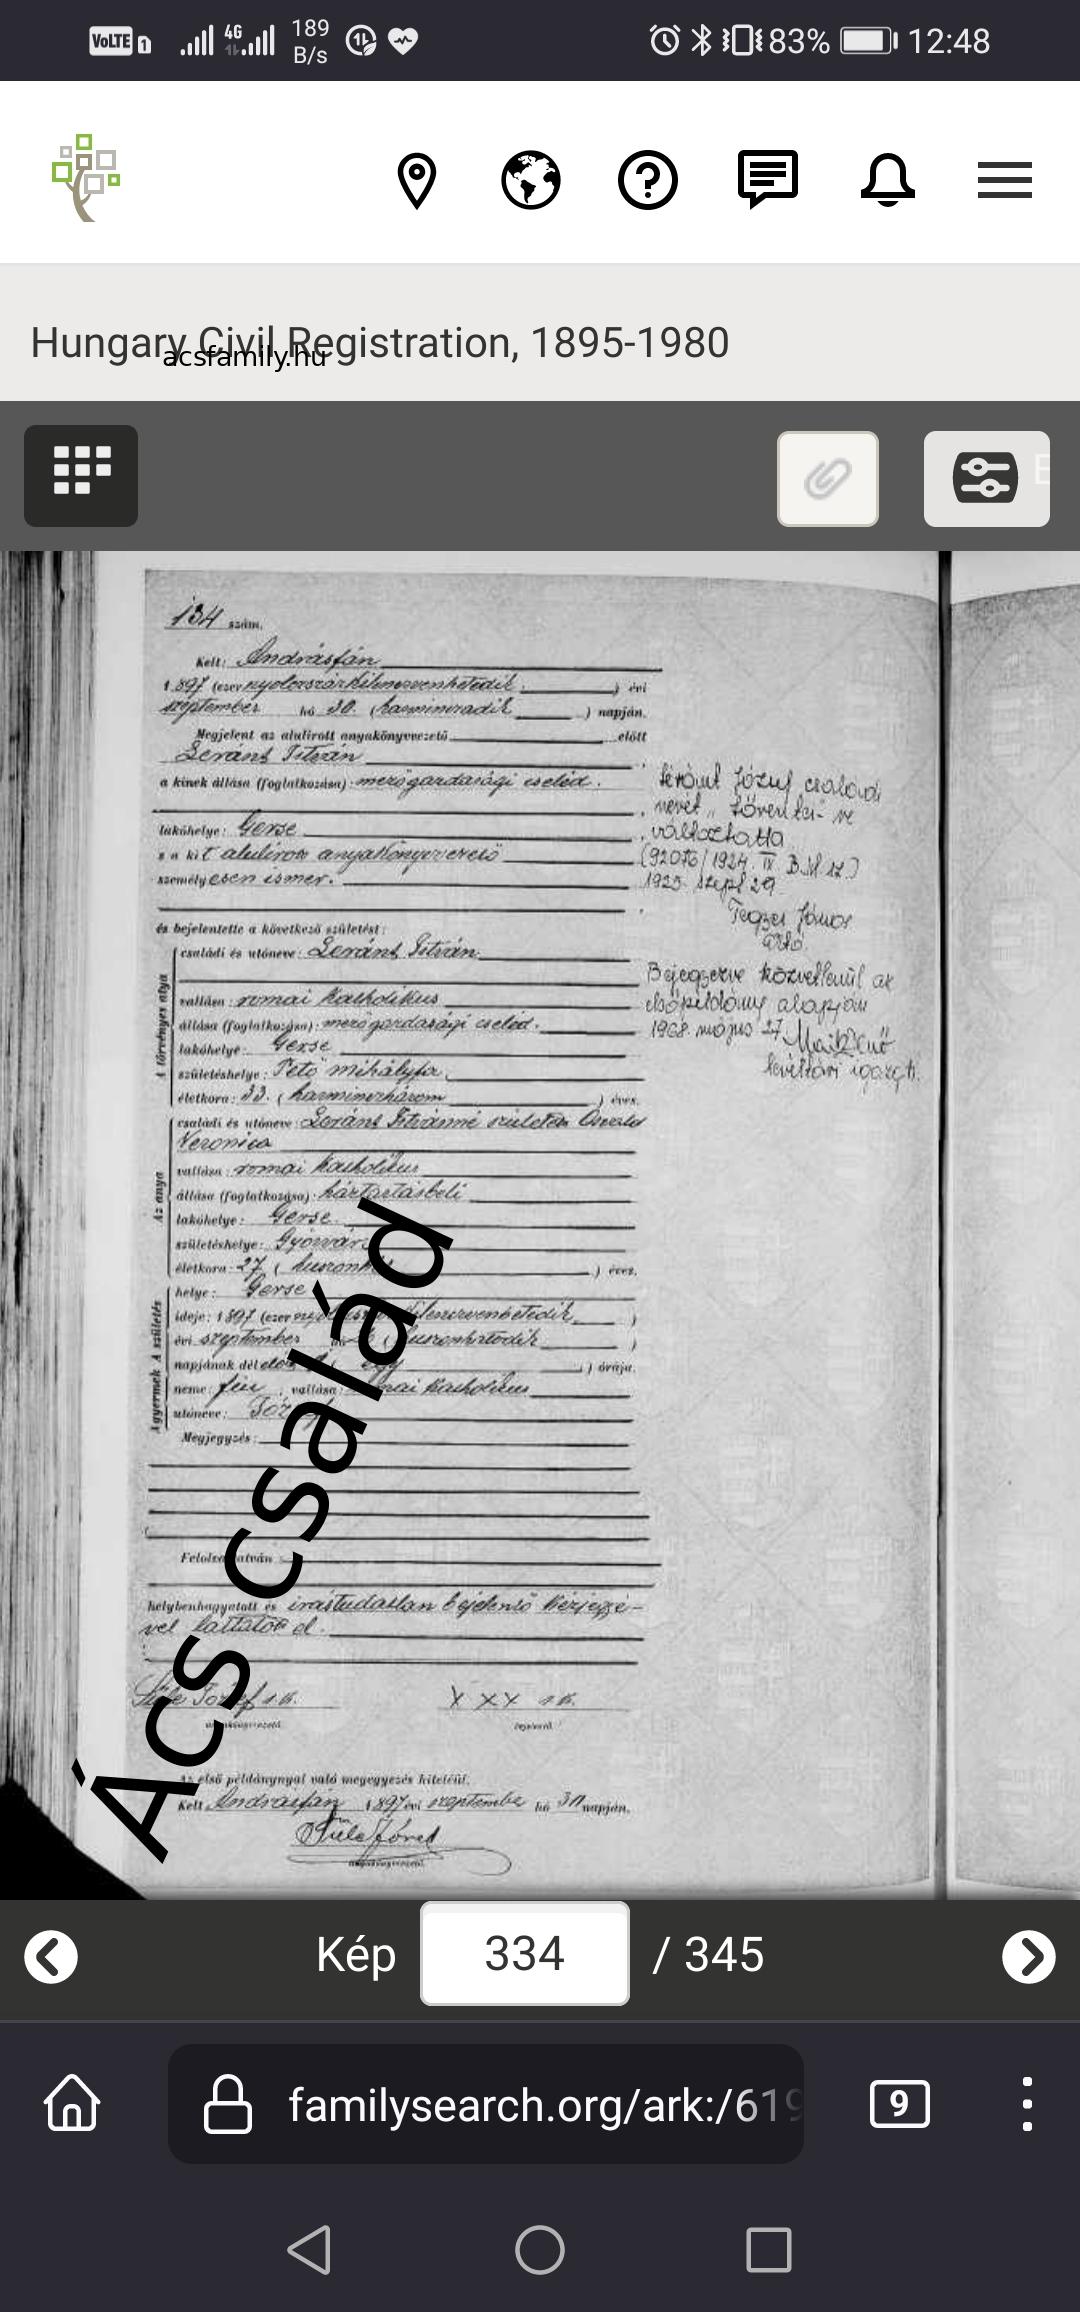 VoLTE 1 4G 189 B/s 83% 12:48
Hungary Civil Registration, 1895-1980
acsfamily.hu
134 szám.
Kelt: Andrásfán
1897 (ezer nyolcszázkilencvenhetedik) évi
szeptember hó 30. (harmincadik) napján.
Megjelent az alulirott anyakönyvvezető előtt
Seránt István
a kinek állása (foglalkozása): mezőgazdasági cseléd.
lakóhelye: Gerse
s a kit alulirott anyakönyvvezető
személyesen ismer.
és bejelentette a következő születést:
A törvényes atya
családi és utóneve: Seránt István
vallása: romai katholikus
állása (foglalkozása): mezőgazdasági cseléd.
lakóhelye: Gerse
születéshelye: Pető mihályfa
életkora: 33. (harminczhárom) éves.
Az anya
családi és utóneve: Seránt Istvánné született
Veronica
vallása: romai katholikus
állása (foglalkozása): háztartásbeli
lakóhelye: Gerse
születéshelye: Gyórvár
életkora: 27 ( ) éves.
A gyermek A születés
helye: Gerse
ideje: 1897 (ezer kilencvenhetedik)
évi szeptember hó (huszonhatodik)
napjának délelőtt egy ) órája.
neme: fiu, vallása: romai katholikus
utóneve: József
Megjegyzés:
Felolvastatván
helybenhagyatott és irástudatlan bejelentő kézjegyé-
vel láttatott el.
Süle József s.k. X X X s.k.
anyakönyvvezető. bejelentő.
Az első példánynyal való megegyezés hiteléül.
Kelt Andrásfán 1897 évi szeptember hó 30 napján.
Süle József
anyakönyvvezető.
Seránt József családi
nevét "
változtatta
(92076/1924. IV B.M. sz.)
1925. szept 29.
János
Bejegyezve közvetlenül az
elsőpéldány alapján
1968. május 27.
levéltári igazg.
Ács család
Kép 334 / 345
familysearch.org/ark:/619
9